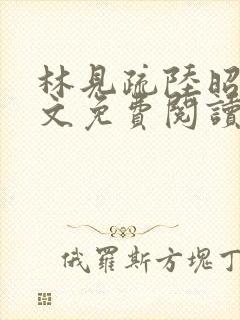 林見疏陸昭
文免費閱讀
俄羅斯方塊丁